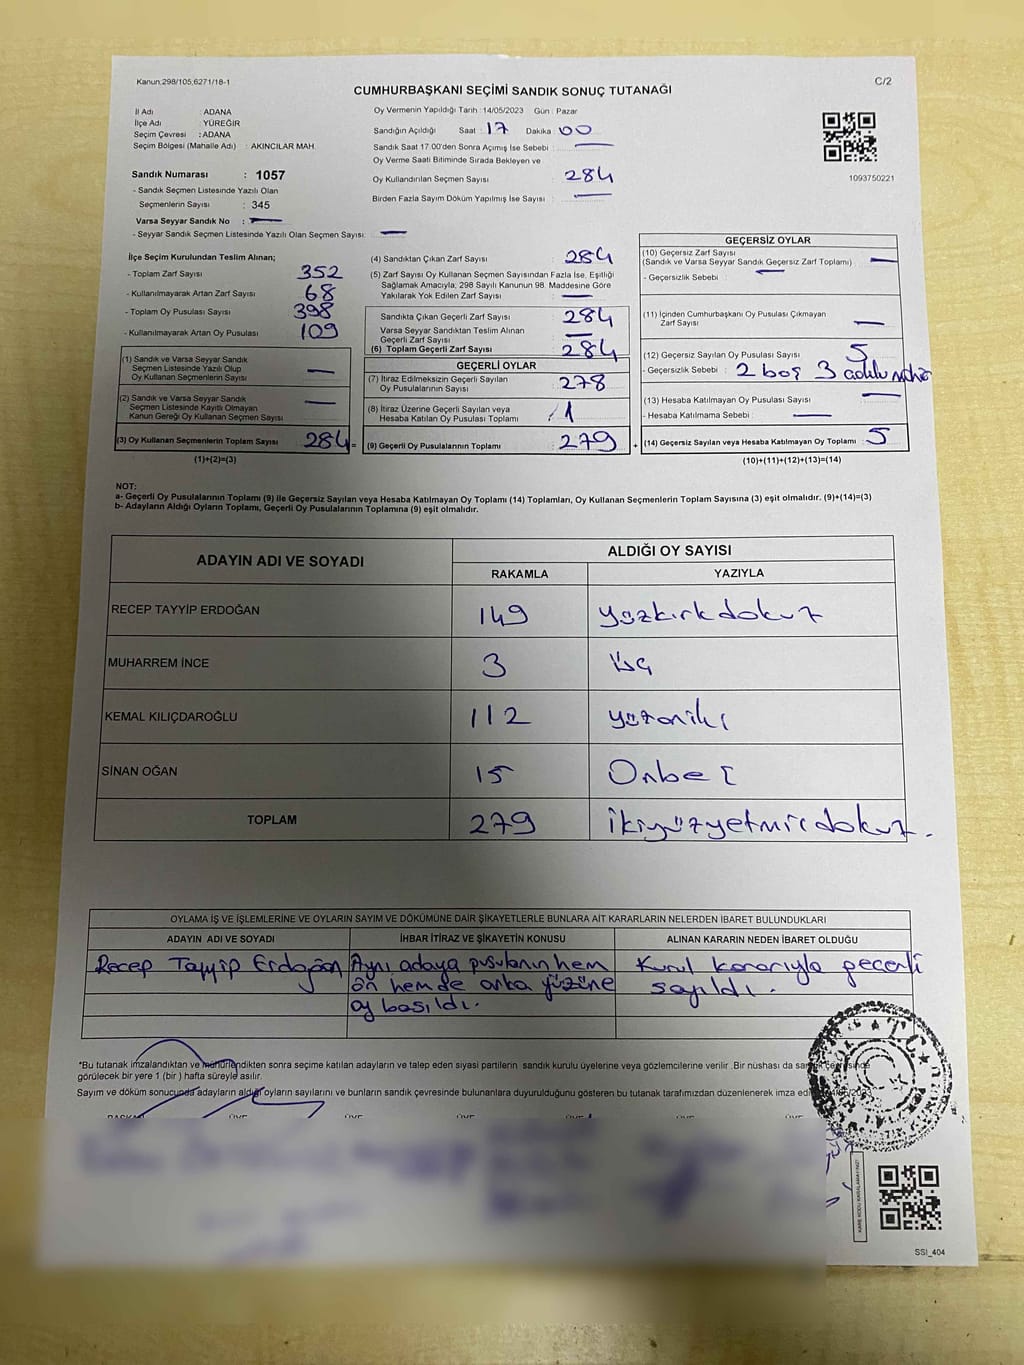 Kanun:298/105,6271/18-1
C/2
CUMHURBAŞKANI SEÇİMİ SANDIK SONUÇ TUTANAĞI
İl Adı : ADANA
İlçe Adı : YÜREĞİR
Seçim Çevresi : ADANA
Seçim Bölgesi (Mahalle Adı) : AKINCILAR MAH.
Sandık Numarası : 1057
- Sandık Seçmen Listesinde Yazılı Olan
Seçmenlerin Sayısı : 345
Varsa Seyyar Sandık No : —
- Seyyar Sandık Seçmen Listesinde Yazılı Olan Seçmen Sayısı: —
Oy Vermenin Yapıldığı Tarih :14/05/2023 Gün : Pazar
Sandığın Açıldığı Saat : 17 Dakika : 00
Sandık Saat 17:00'den Sonra Açımış İse Sebebi : —
Oy Verme Saati Bitiminde Sırada Bekleyen ve
Oy Kullandırılan Seçmen Sayısı : 284
Birden Fazla Sayım Döküm Yapılmış İse Sayısı : —
1093750221
İlçe Seçim Kurulundan Teslim Alınan;
- Toplam Zarf Sayısı 352
- Kullanılmayarak Artan Zarf Sayısı 68
- Toplam Oy Pusulası Sayısı 398
- Kullanılmayarak Artan Oy Pusulası 109
(1) Sandık ve Varsa Seyyar Sandık
Seçmen Listesinde Yazılı Olup
Oy Kullanan Seçmenlerin Sayısı —
(2) Sandık ve Varsa Seyyar Sandık
Seçmen Listesinde Kayıtlı Olmayan
Kanun Gereği Oy Kullanan Seçmen Sayısı —
(3) Oy Kullanan Seçmenlerin Toplam Sayısı 284 =
(1)+(2)=(3)
(4) Sandıktan Çıkan Zarf Sayısı : 284
(5) Zarf Sayısı Oy Kullanan Seçmen Sayısından Fazla İse, Eşitliği
Sağlamak Amacıyla, 298 Sayılı Kanunun 98. Maddesine Göre
Yakılarak Yok Edilen Zarf Sayısı : —
Sandıkta Çıkan Geçerli Zarf Sayısı : 284
Varsa Seyyar Sandıktan Teslim Alınan
Geçerli Zarf Sayısı : —
(6) Toplam Geçerli Zarf Sayısı : 284
GEÇERLİ OYLAR
(7) İtiraz Edilmeksizin Geçerli Sayılan
Oy Pusulalarının Sayısı : 278
(8) İtiraz Üzerine Geçerli Sayılan veya
Hesaba Katılan Oy Pusulası Toplamı : 1
(9) Geçerli Oy Pusulalarının Toplamı : 279 +
GEÇERSİZ OYLAR
(10) Geçersiz Zarf Sayısı
(Sandık ve Varsa Seyyar Sandık Geçersiz Zarf Toplamı) : —
- Geçersizlik Sebebi : —
(11) İçinden Cumhurbaşkanı Oy Pusulası Çıkmayan
Zarf Sayısı : —
(12) Geçersiz Sayılan Oy Pusulası Sayısı : 5
- Geçersizlik Sebebi : 2 boş 3
(13) Hesaba Katılmayan Oy Pusulası Sayısı : —
- Hesaba Katılmama Sebebi : —
(14) Geçersiz Sayılan veya Hesaba Katılmayan Oy Toplamı : 5
(10)+(11)+(12)+(13)=(14)
NOT:
a- Geçerli Oy Pusulalarının Toplamı (9) ile Geçersiz Sayılan veya Hesaba Katılmayan Oy Toplamı (14) Toplamları, Oy Kullanan Seçmenlerin Toplam Sayısına (3) eşit olmalıdır. (9)+(14)=(3)
b- Adayların Aldığı Oyların Toplamı, Geçerli Oy Pusulalarının Toplamına (9) eşit olmalıdır.
ADAYIN ADI VE SOYADI ALDIĞI OY SAYISI
RAKAMLA YAZIYLA
RECEP TAYYİP ERDOĞAN 149 yüzkırkdokuz
MUHARREM İNCE 3 üç
KEMAL KILIÇDAROĞLU 112 yüzoniki
SİNAN OĞAN 15 Onbeş
TOPLAM 279 ikiyüzyetmişdokuz.
OYLAMA İŞ VE İŞLEMLERİNE VE OYLARIN SAYIM VE DÖKÜMÜNE DAİR ŞİKAYETLERLE BUNLARA AİT KARARLARIN NELERDEN İBARET BULUNDUKLARI
ADAYIN ADI VE SOYADI İHBAR İTİRAZ VE ŞİKAYETİN KONUSU ALINAN KARARIN NEDEN İBARET OLDUĞU
Recep Tayyip Erdoğan Aynı adaya pusulanın hem Kurul kararıyla geçerli
ön hemde arka yüzüne sayıldı.
oy basıldı.
*Bu tutanak imzalandıktan ve mühürlendikten sonra seçime katılan adayların ve talep eden siyasi partilerin sandık kurulu üyelerine veya gözlemcilerine verilir .Bir nüshası da sandık çevresinde
görülecek bir yere 1 (bir ) hafta süreyle asılır.
Sayım ve döküm sonucunda adayların aldığı oyların sayılarını ve bunların sandık çevresinde bulunanlara duyurulduğunu gösteren bu tutanak tarafımızdan düzenlenerek imza
BAŞKAN ÜYE ÜYE ÜYE ÜYE
T.C.
SSI_404